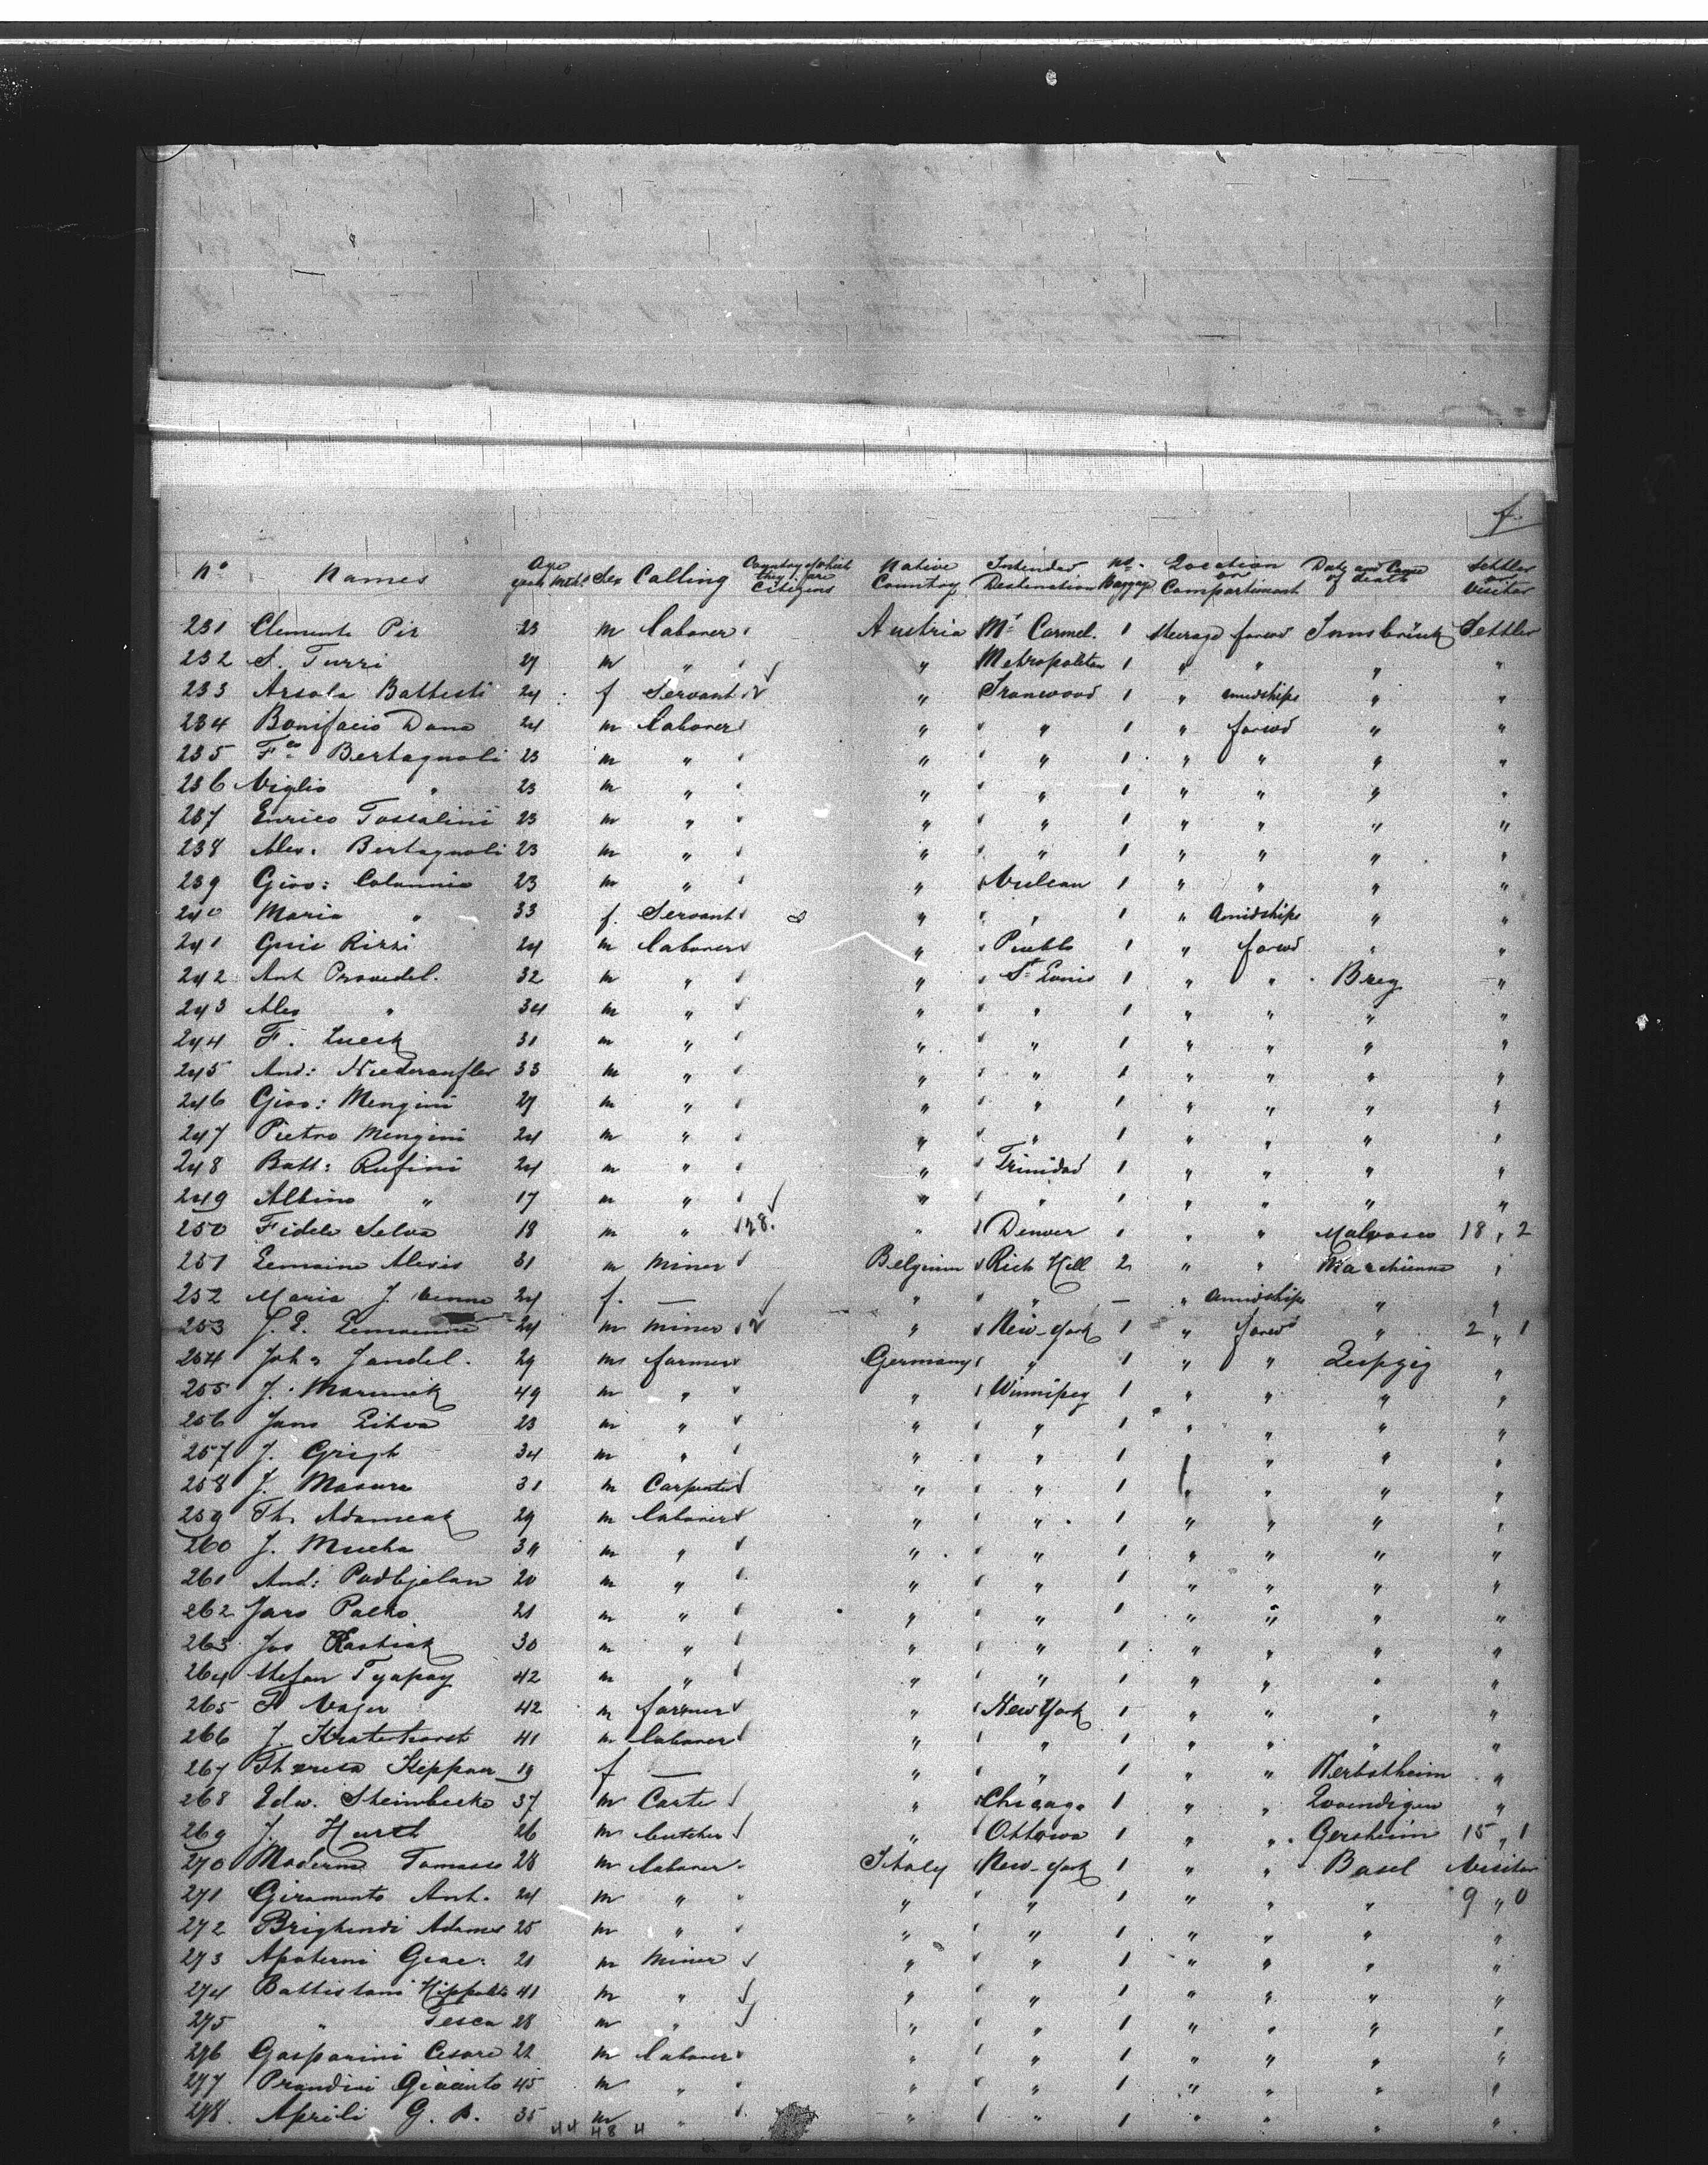 f.
No Names Age years Mths Sex Calling Country of which they are Citizens Native Country Intended Destination No Baggage Location or Compartment Date and Cause of death Settler or Visitor
231 Clemente Pir 23 m laborer Austria Mt Carmel. 1 Steerage forwd Innsbrück Settler
232 S. Turri 27 m " " Metropolitan 1 " " " "
233 Arsola Battesti 24 f Servant " Ironwood 1 " amidships " "
234 Bonifacio Dana 24 m laborer " " 1 " forwd " "
235 Fco Bertagnoli 23 m " " " 1 " " " "
236 Viglio " 23 m " " " 1 " " " "
237 Enrico Tossalini 23 m " " " 1 " " " "
238 Ales. Bertagnoli 23 m " " " 1 " " " "
239 Giov: Colannia 23 m " " Vulcan 1 " " " "
240 Maria " 33 f. Servant " " 1 " Amidships " "
241 Guie Rizzi 24 m laborer " Pueblo 1 " forwd " "
242 Ant Provedel. 32 m " " St Louis 1 " " Breg "
243 Ales " 34 m " " " 1 " " " "
244 F. Lueck 31 m " " " 1 " " " "
245 And: Niederaufler 33 m " " " 1 " " " "
246 Giov: Mengini 27 m " " " 1 " " " "
247 Pietro Mengini 24 m " " " 1 " " " "
248 Batt: Rufini 24 m " " Trinidad 1 " " " "
249 Albino " 17 m " " " 1 " " " "
250 Fidele Selva 18 m " 128. " Denver 1 " " Malvasco 18 " 2
251 Lemaine Alexis 31 m Miner Belgium Rich Hill 2 " " Marchienne "
252 Maria J. 24 f. — " " — " Amidships " "
253 J. E. 24 m miner " New-York 1 " forwd " 2 " 1
254 Joh. Jandel. 29 m farmer Germany " 1 " " Leipzig "
255 J. Marunik 49 m " " Winnipeg 1 " " " "
256 Jano Lihva 23 m " " " 1 " " " "
257 J. Grigh 34 m " " " 1 " " "
258 J. Masura 31 m Carpenter " " 1 " " " "
259 Th. Adamcak 29 m laborer " " 1 " " " "
260 J. Mucha 34 m " " " 1 " " " "
261 And: Podbjelan 20 m " " " 1 " " " "
262 Jaro Palko 21 m " " " 1 " " " "
263 Jos Kastiak 30 m " " " 1 " " " "
264 Stefan Tyapay 42 m " " " 1 " " " "
265 F Vajer 42 m farmer " New York 1 " " " "
266 J. Kraterhorst 41 m laborer " " 1 " " " "
267 Theresa Keppan 19 f — " " 1 " " Herbotheim "
268 Edw. Steinbecke 37 m Carter " Chicago 1 " " "
269 J. Hurth 26 m butcher " Ottowa 1 " " Gersheim 15 " 1
270 Moderna Tomasso 28 m laborer Italy New-York 1 " " Basel Visitor
271 Giramonto Ant. 24 m " " " 1 " " " 9 " 0
272 Brighendi Adamo 25 m " " " 1 " " " "
273 Apaterni Giac: 21 m Miner " " 1 " " " "
274 Battistoni Hippolto 41 m " " " 1 " " " "
275 " Tesca 28 m " " " 1 " " " "
276 Gasparini Cesare 22 m laborer " " 1 " " " "
277 Prandini Giacinto 45 m " " " 1 " " " "
278. Aprili G. B. 35 m " " " 1 " " " "
44 48 4